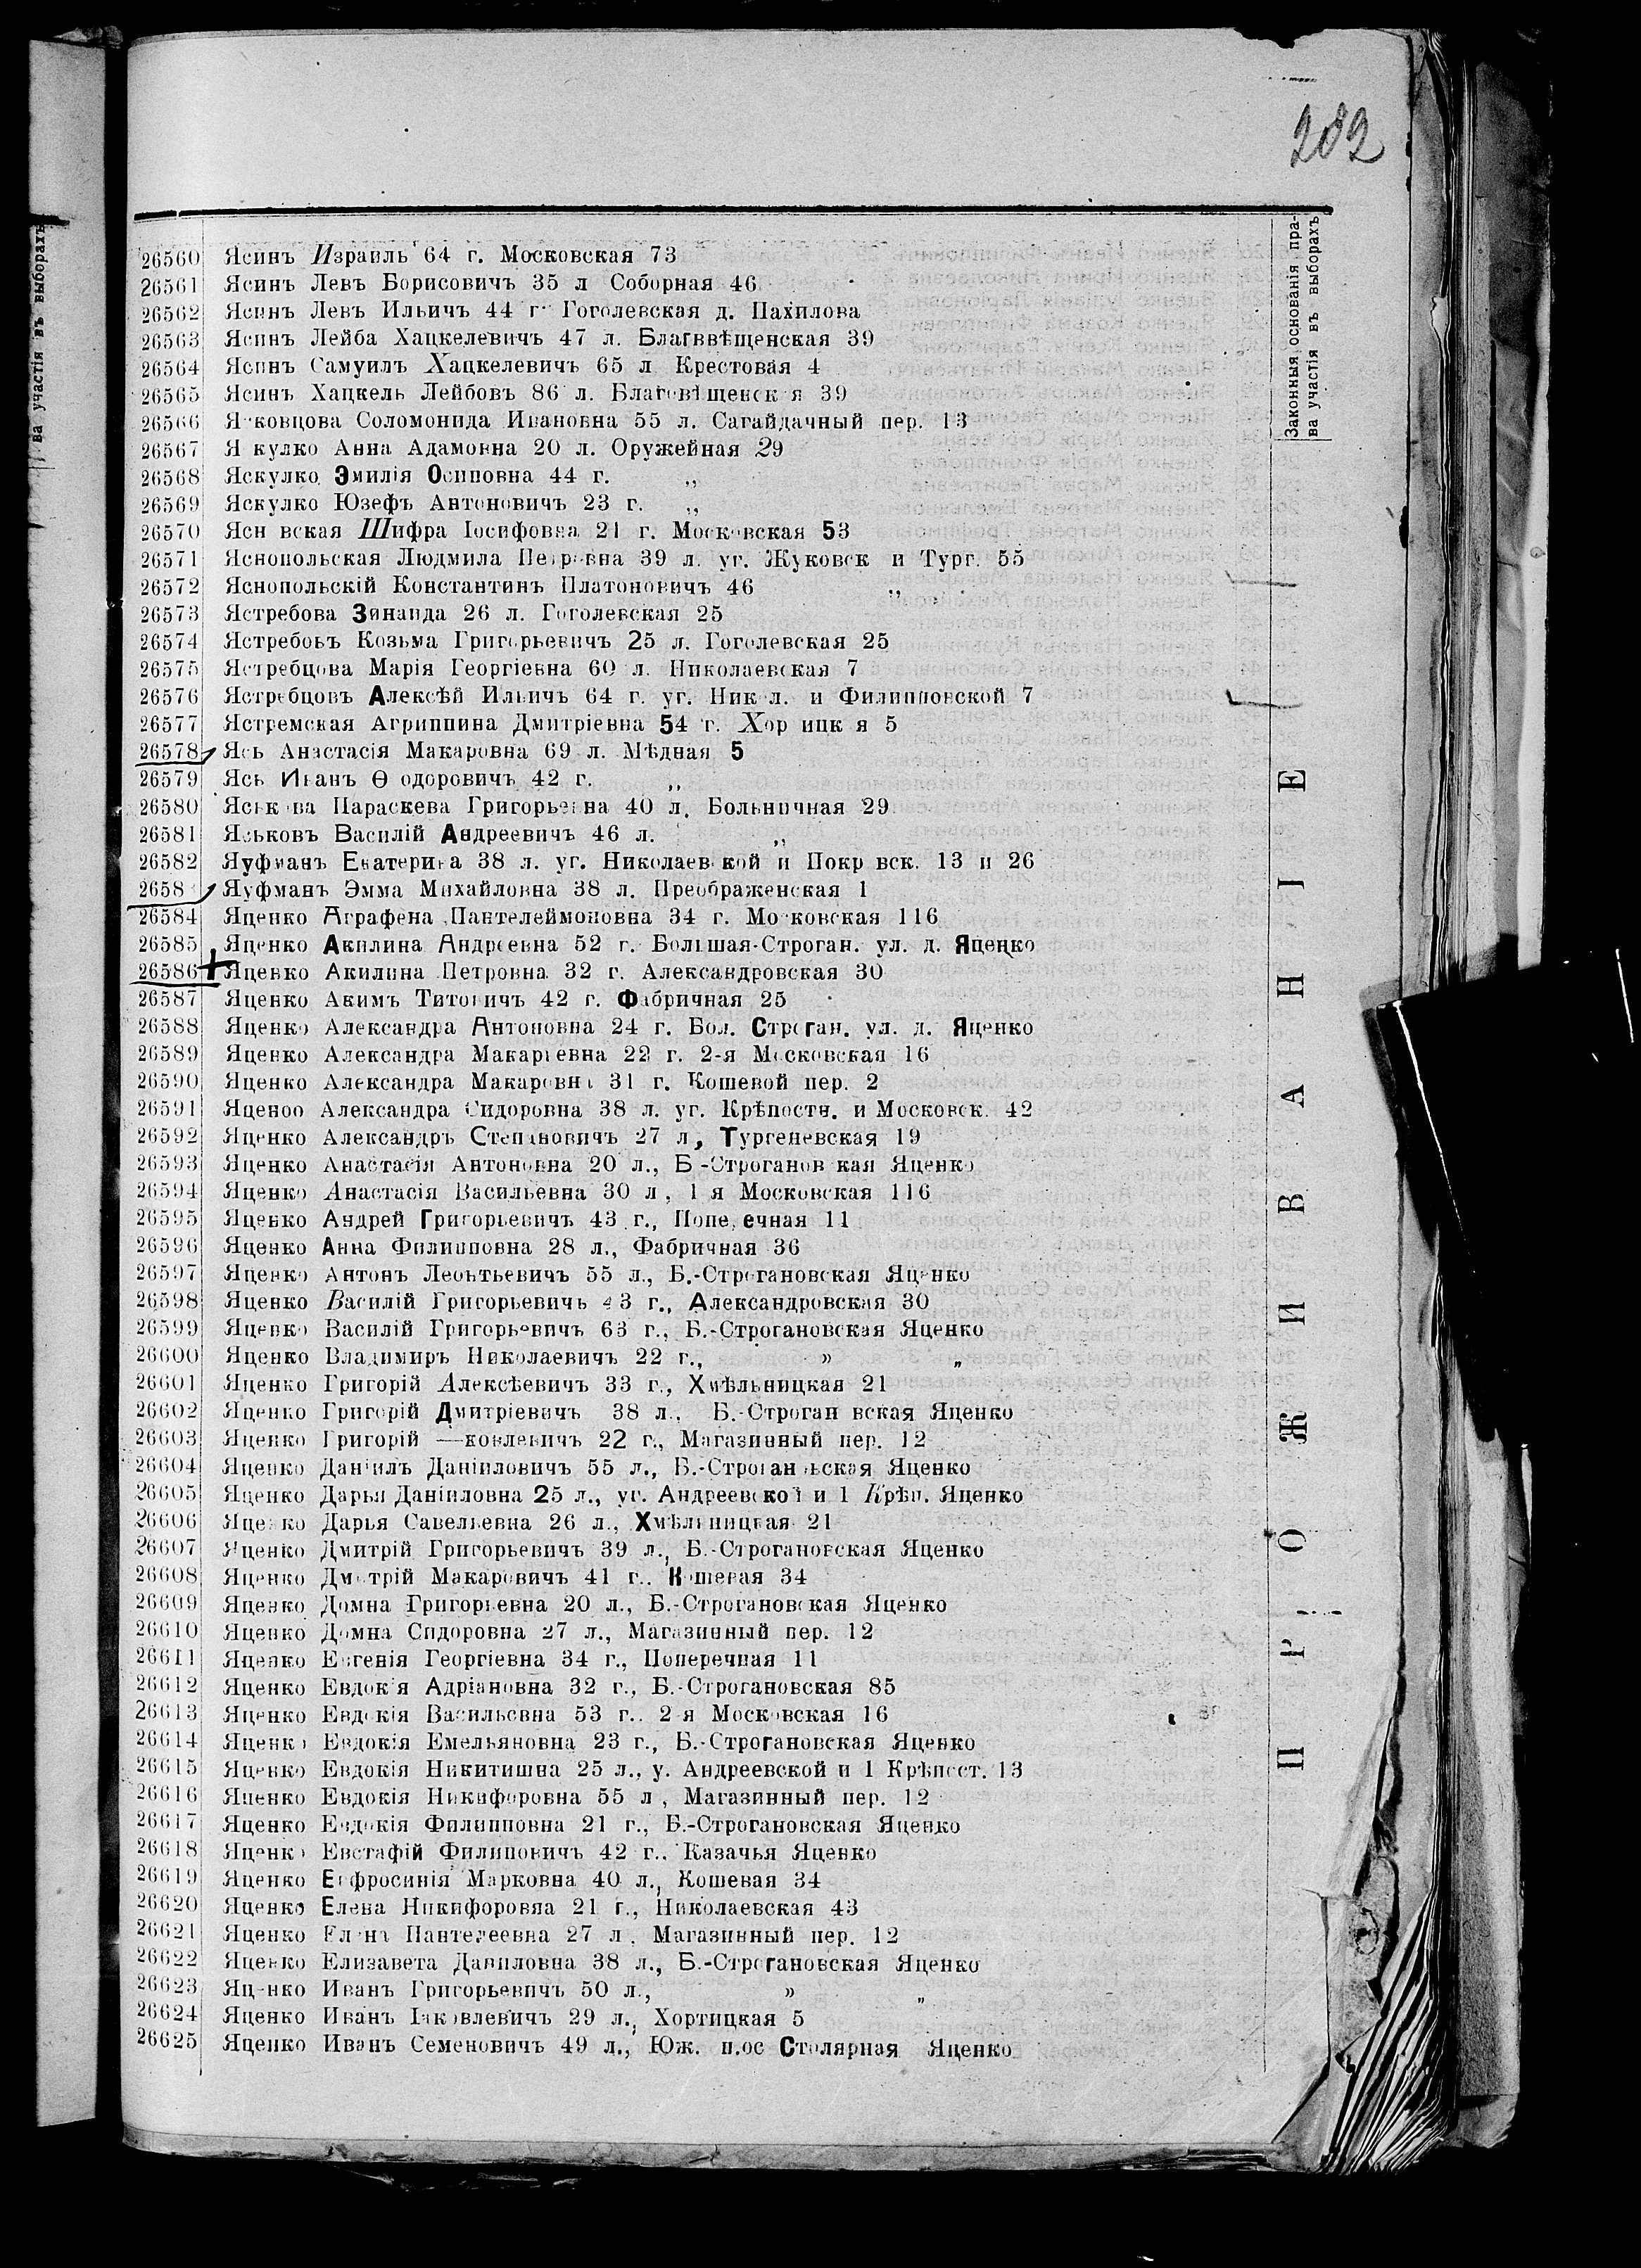 282
Законныя основанія пра-
ва участія въ выборахъ
26560 Ясинъ Израиль 64 г. Московская 73
26561 Ясинъ Левъ Борисовичъ 35 л Соборная 46
26562 Ясинъ Левъ Ильичъ 44 г Гоголевская д. Пахилова
26563 Ясинъ Лейба Хацкелевичъ 47 л. Благввѣщенская 39
26564 Ясинъ Самуилъ Хацкелевичъ 65 л Крестовая 4
26565 Ясинъ Хацкель Лейбовъ 86 л. Благовѣщенск я 39
26566 Я ковцова Соломонида Ивановна 55 л. Сагайдачный пер. 13
26567 Я кулко Анна Адамовна 20 л. Оружейная 29
26568 Яскулко Эмилія Осиповна 44 г. „
26569 Яскулко Юзефъ Антоновичъ 23 г. „
26570 Ясн вская Шифра Іосифовна 21 г. Московская 53
26571 Яснопольская Людмила Петровна 39 л. уг. Жуковск и Тург. 55
26572 Яснопольскій Константинъ Платоновичъ 46 „
26573 Ястребова Зинаида 26 л. Гоголевская 25
26574 Ястребовъ Козьма Григорьевичъ 25 л. Гоголевская 25
26575 Ястребцова Марія Георгіевна 60 л. Николаевская 7
26576 Ястребцовъ Алексѣй Ильичъ 64 г. уг. Ник л. и Филипповской 7
26577 Ястремская Агриппина Дмитріевна 54 г. Хор ицк я 5
26578 Ясь Анастасія Макаровна 69 л. Мѣдная 5
26579 Ясь Иванъ Ѳ одоровичъ 42 г. „
26580 Яськова Параскева Григорьевна 40 л. Больничная 29
26581 Яськовъ Василій Андреевичъ 46 л. „
26582 Яуфманъ Екатерина 38 л. уг. Николаевской и Покр вск. 13 и 26
2658 Яуфманъ Эмма Михайловна 38 л. Преображенская 1
26584 Яценко Аграфена Пантелеймоновна 34 г. Московская 116
26585 Яценко Акилина Андреевна 52 г. Большая-Строган. ул. д. Яценко
26586 + Яценко Акилина Петровна 32 г. Александровская 30
26587 Яценко Акимъ Титовичъ 42 г. Фабричная 25
26588 Яценко Александра Антоновна 24 г. Бол. Строган. ул. д. Яценко
26589 Яценко Александра Макарьевна 22 г. 2-я Московская 16
26590 Яценко Александра Макаровна 31 г. Кошевой пер. 2
26591 Яценоо Александра Сидоровна 38 л. уг. Крѣпостн. и Московск. 42
26592 Яценко Александръ Степановичъ 27 л, Тургеневская 19
26593 Яценко Анастасія Антоновна 20 л., Б -Строганов кая Яценко
26594 Яценко Анастасія Васильевна 30 л, 1 я Московская 116
26595 Яценко Андрей Григорьевичъ 43 г., Поперечная 11
26596 Яценко Анна Филипповна 28 л., Фабричная 36
26597 Яценко Антонъ Леонтьевичъ 55 л., Б.-Строгановская Яценко
26598 Яценко Василій Григорьевичъ 43 г., Александровская 30
26599 Яценко Василій Григорьевичъ 63 г., Б.-Строгановская Яценко
26600 Яценко Владимиръ Николаевичъ 22 г., » „
26601 Яценко Григорій Алексѣевичъ 33 г., Хмѣльницкая 21
26602 Яценко Григорій Дмитріевичъ 38 л., Б.-Строган вская Яценко
26603 Яценко Григорій —ковлевичъ 22 г., Магазинный пер. 12
26604 Яценко Даніилъ Даніиловичъ 55 л., Б.-Строгановская Яценко
26605 Яценко Дарья Даніиловна 25 л., уг. Андреевской и 1 Крѣп. Яценко
26606 Яценко Дарья Савельевна 26 л., Хмѣльницкая 21
26607 Яценко Дмитрій Григорьевичъ 39 л., Б.-Строгановская Яценко
26608 Яценко Дмитрій Макаровичъ 41 г.. Кошевая 34
26609 Яценко Домна Григорьевна 20 л., Б.-Строгановская Яценко
26610 Яценко Домна Сидоровна 27 л., Магазинный пер. 12
26611 Яценко Евгенія Георгіевна 34 г., Поперечная 11
26612 Яценко Евдокія Адріановна 32 г., Б.-Строгановская 85
26613 Яценко Евдокія Васильевна 53 г.. 2-я Московская 16
26614 Яценко Евдокія Емельяновна 23 г., Б.-Строгановская Яценко
26615 Яценко Евдокія Никитишна 25 л., у. Андреевской и 1 Крѣпост. 13
26616 Яценко Евдокія Никифоровна 55 л, Магазинный пер. 12
26617 Яценко Евдокія Филипповна 21 г., Б.-Строгановская Яценко
26618 Яценко Евстафій Филиповичъ 42 г.. Казачья Яценко
26619 Яценко Евфросинія Марковна 40 л., Кошевая 34
26620 Яценко Елена Никифоровна 21 г., Николаевская 43
26621 Яценко Елена Пантелеевна 27 л. Магазинный пер. 12
26622 Яценко Елизавета Даниловна 38 л., Б.-Строгановская Яценко
26623 Яценко Иванъ Григорьевичъ 50 л., » „
26624 Яценко Иванъ Іаковлевичъ 29 л., Хортицкая 5
26625 Яценко Иванъ Семеновичъ 49 л., Юж. п.ос Столярная Яценко
ПРОЖИВАНІЕ
ва участія въ выборахъ